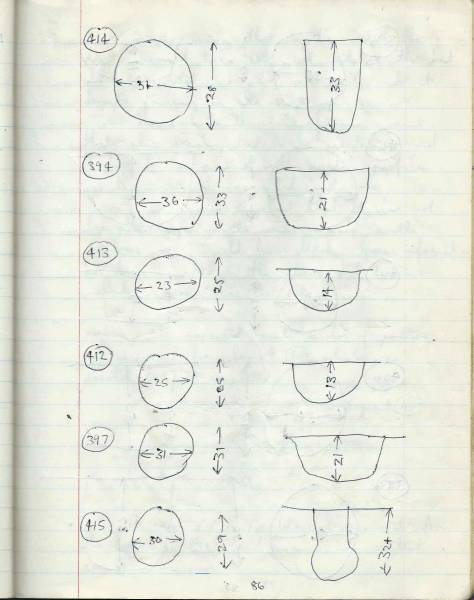 414 28 33
394 36 33 21
413 23 25 14
412 25 25 13
397 31 31 21
415 30 29 324
86